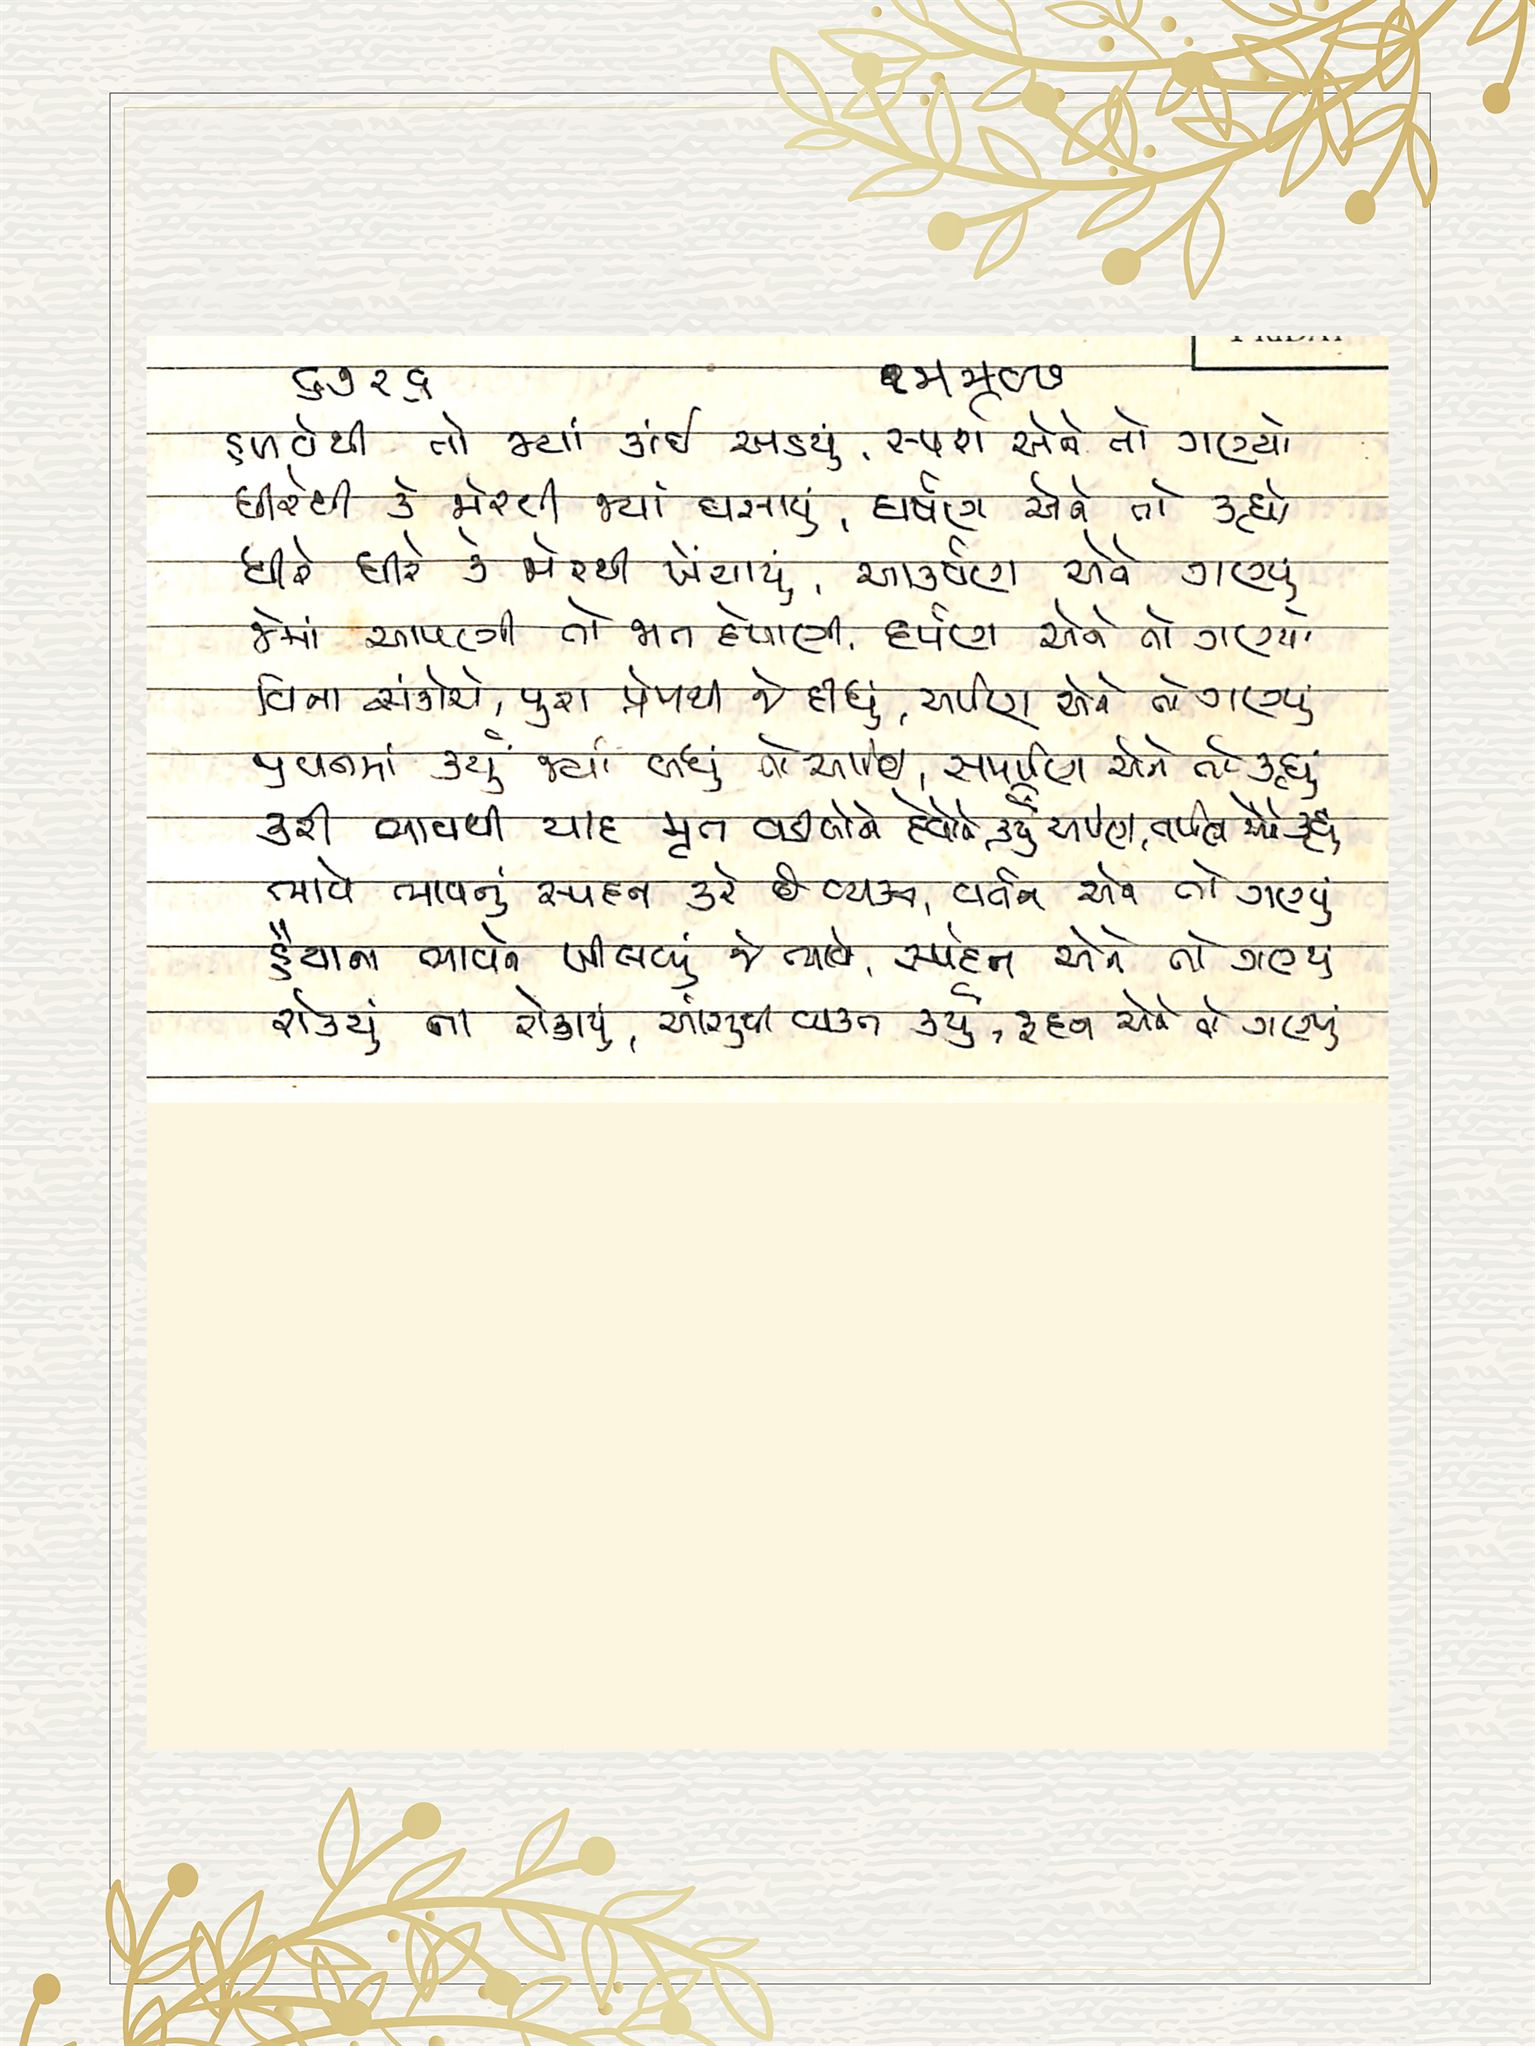 FRIDAY
૬૭૨૬
હળવેથી તો જ્યાં કાંઈ અડયું, સ્પર્શ એને તો ગણ્યો
ધીરેથી કે જોરથી જ્યાં ઘસાયું, ઘર્ષણ એને તો કહ્યો
ધીરે ધીરે કે જોરથી ખેંચાયું, આકર્ષણ એને ગણ્યુ
જેમાં આપણી તો જાત દેખાણી, દર્પણ એને તો ગણ્યો
વિના સંકોચે, પુરા પ્રેમથી જે દીધું, અર્પણ એને તો ગણ્યું
પ્રવચનમાં કર્યું જ્યાં બધું તો અર્પણ, સમર્પણ એને તો કહ્યું
કરી ભાવથી યાદ મૃત વડીલોને દેવોને, કર્યું અર્પણ, તર્પણ એને કહ્યું
ભાવે ભાવનું સ્પંદન કરે છે વ્યક્ત, વર્તન એને તો ગણ્યું
હૈયાના ભાવને ખીલવ્યું જે ભાવે, સ્પંદન એને તો ગણ્ય
રોક્યું ના રોકાયું, આંસુથી વ્યક્ત કર્યું, રુદન એને તો ગણ્યું